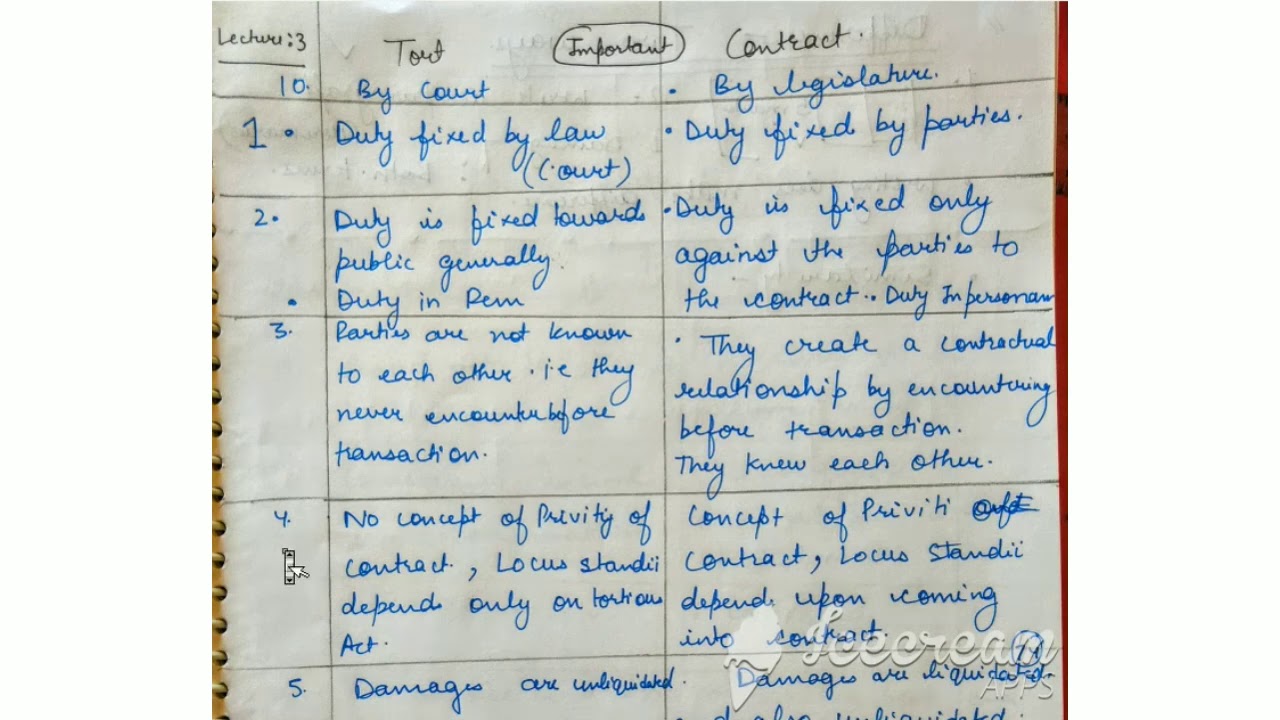 Lecture:3 Tort Important Contract.
10. By Court • By legislature.
1 • Duty fixed by law • Duty fixed by parties.
(Court)
2. Duty is fixed towards • Duty is fixed only
public generally. against the parties to
• Duty in Rem the contract. • Duty Inpersonam
3. Parties are not known • They create a contractual
to each other. i.e they relationship by encountering
never encounter before before transaction.
transaction. They knew each other.
4. No concept of Privitiy of Concept of Priviti
contract, Locus standii Contract, Locus standii
depend only on tortious depend upon coming
Act. into contract.
Icecream
APPS
5. Damages are unliquidated. Damages are liquidated.
and also unliquidated.